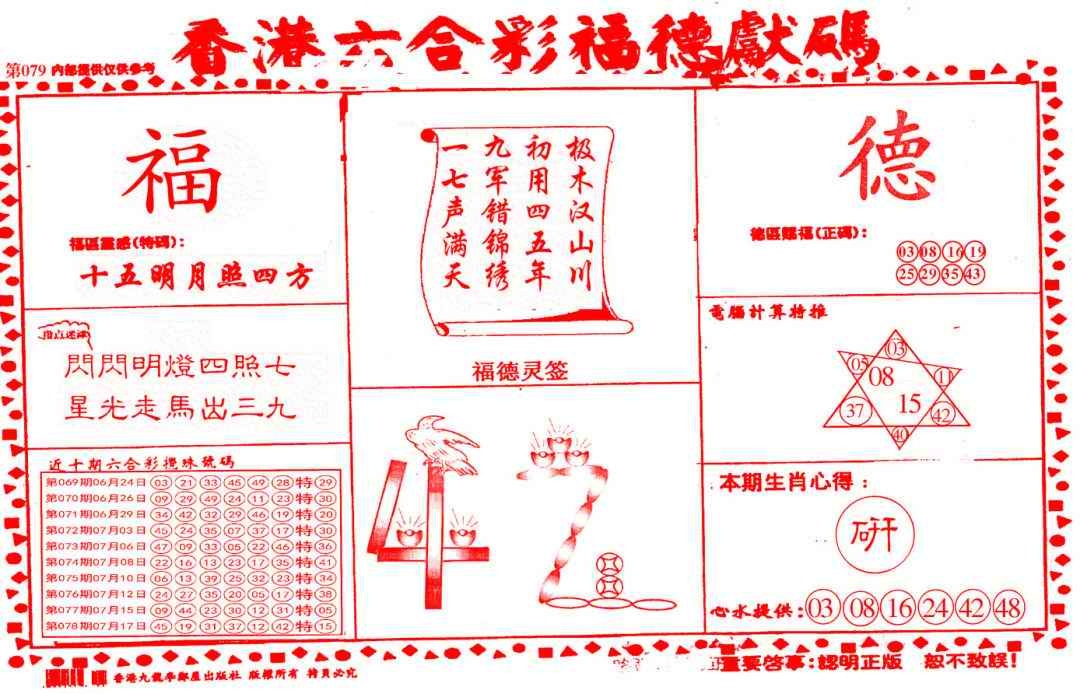 香港六合彩福德獻碼
第079 内部提供仅供参考
福
福區靈感(特碼):
十五明月照四方
閃閃明燈四照七
星光走馬出三九
近十期六合彩攪珠號碼
第069期06月24日 03 21 33 45 49 28 特 29
第070期06月26日 09 29 49 24 11 23 特 30
第071期06月29日 34 42 32 29 46 19 特 20
第072期07月03日 45 24 35 07 37 17 特 30
第073期07月06日 47 09 33 05 22 46 特 36
第074期07月08日 22 16 13 23 17 35 特 41
第075期07月10日 06 13 39 25 32 23 特 34
第076期07月12日 24 27 35 20 05 17 特 38
第077期07月15日 09 44 23 30 12 31 特 05
第078期07月17日 45 19 31 37 12 42 特 15
极木汉山川
初用四五年
九军错锦绣
一七声满天
福德灵签
德
德區賜福(正碼):
03 08 16 19
25 29 35 43
電腦計算特推
03
05 08 11
37 15 42
40
本期生肖心得:
研
心水提供:03 08 16 24 42 48
香港九龍學鄰屋出版社 版權所有 特頁必究
重要啓事:認明正版 恕不致誤!